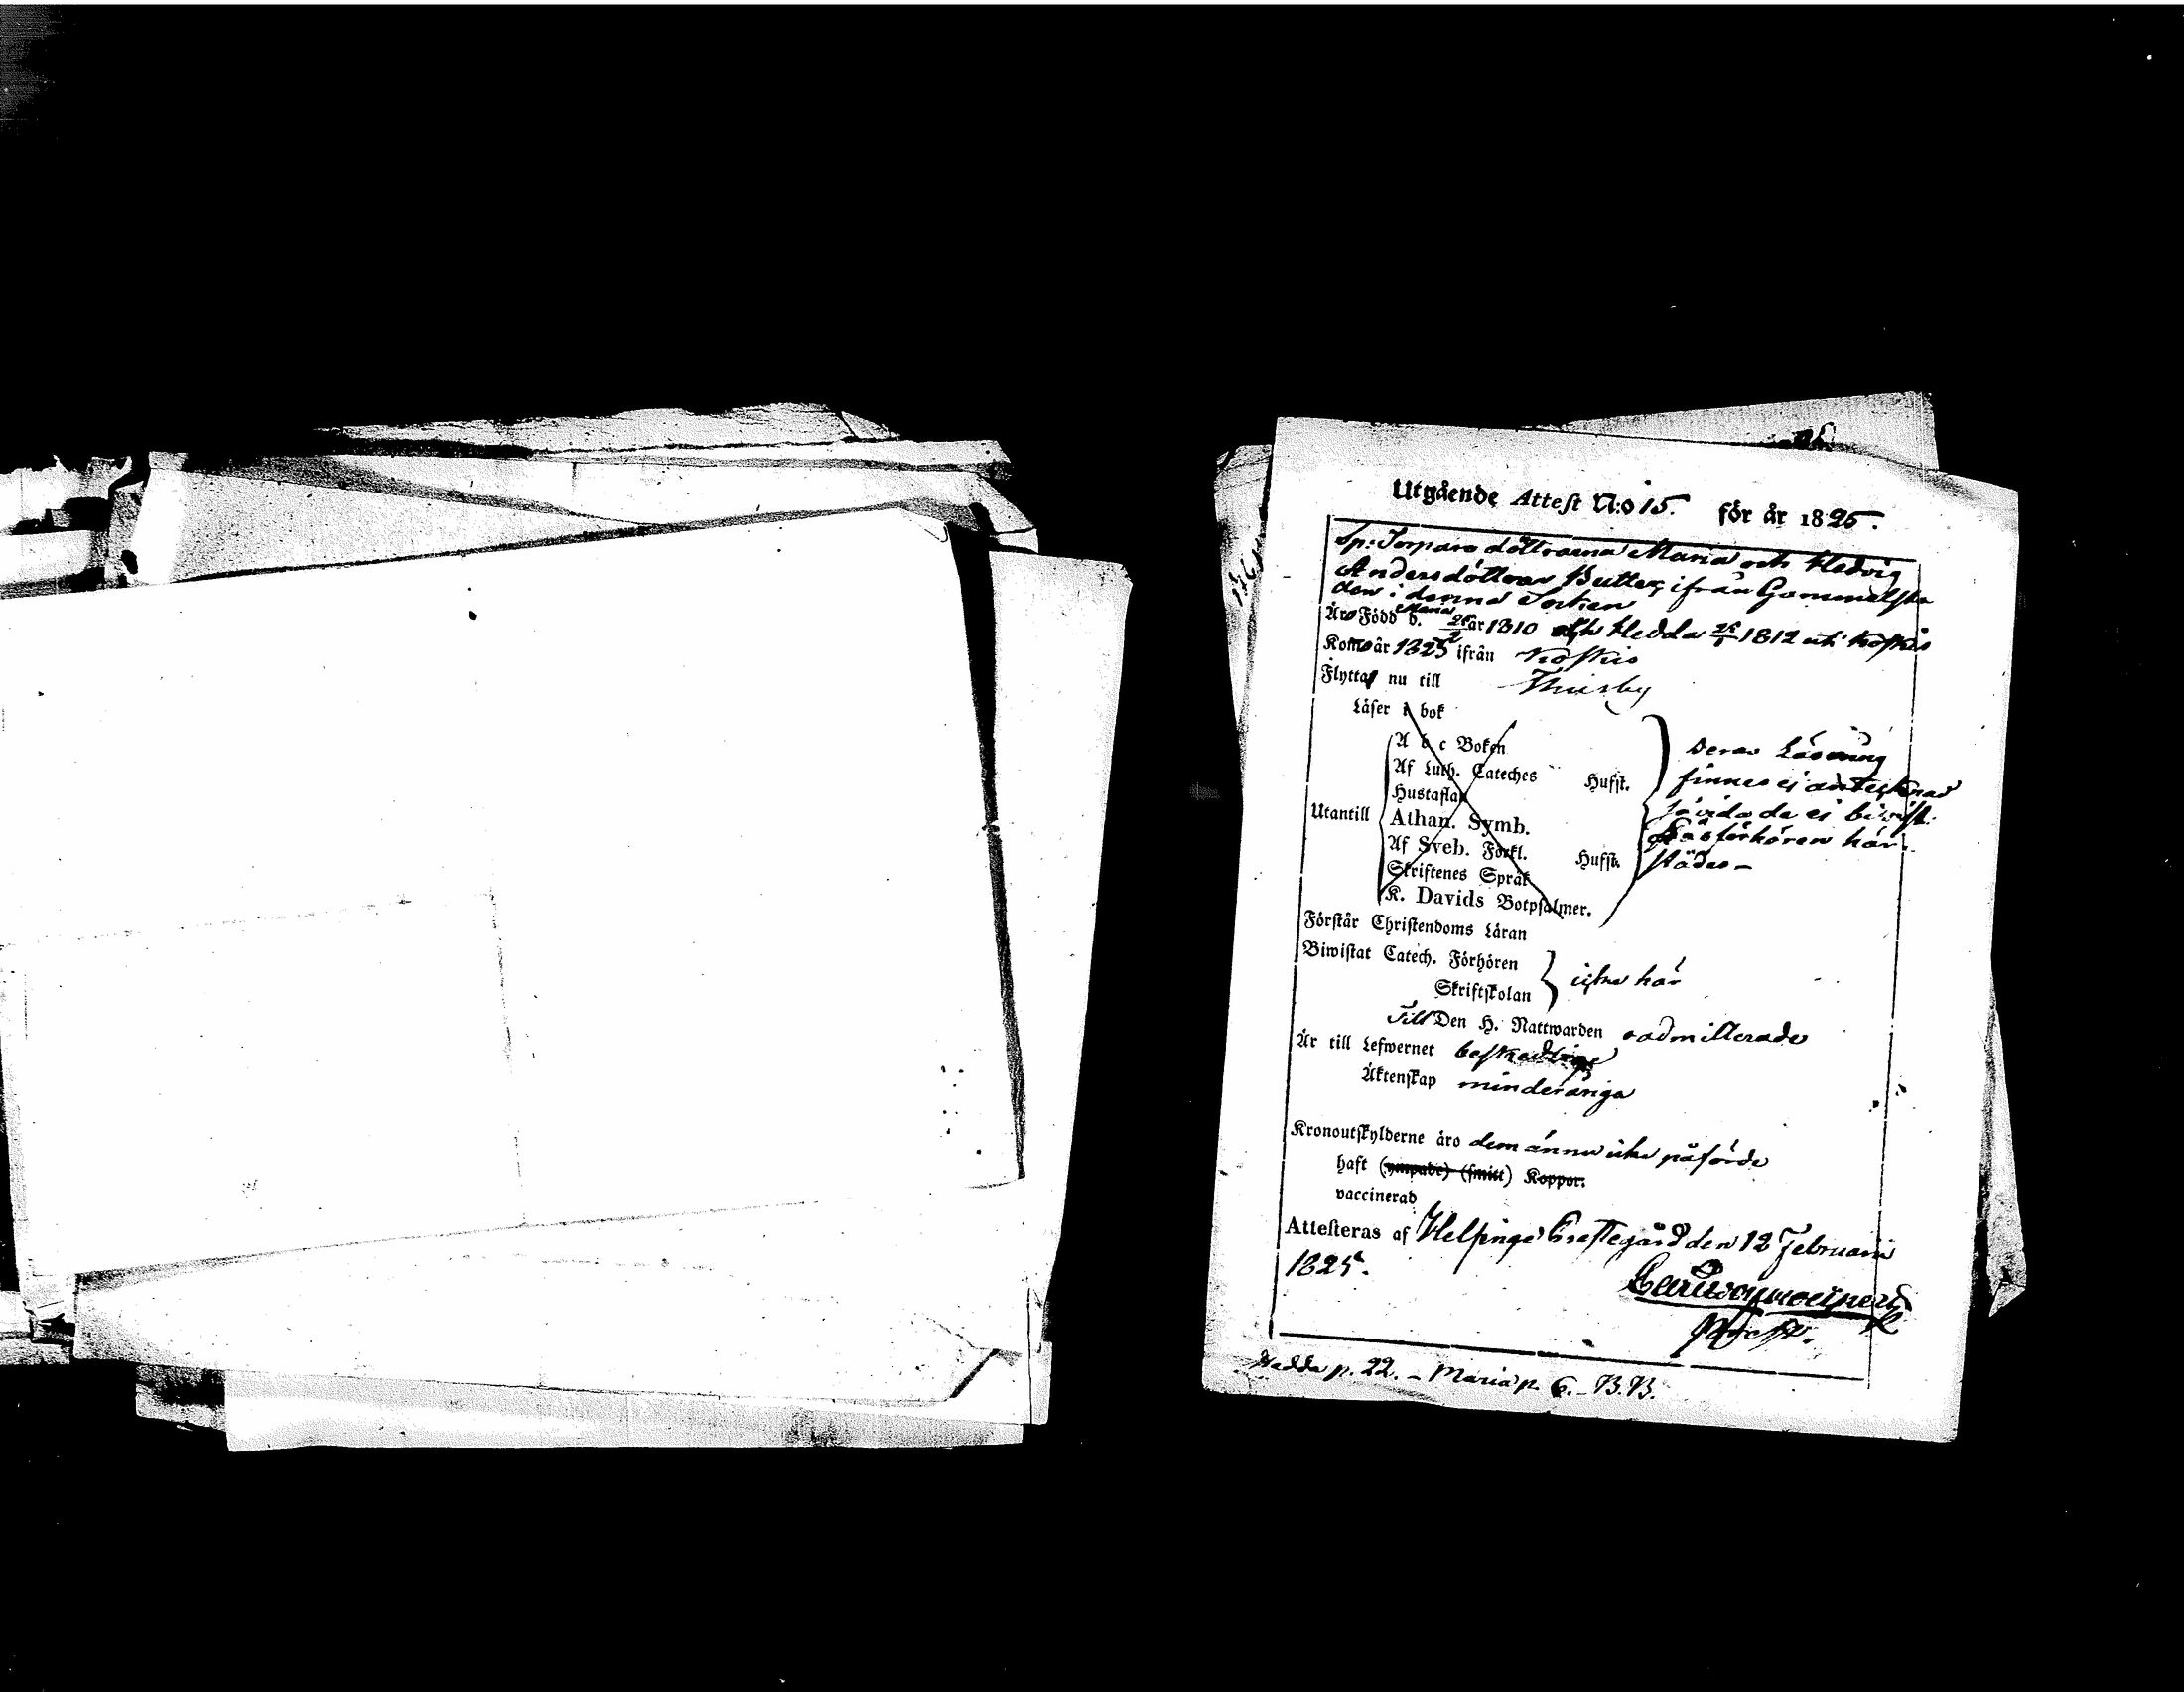 Utgående Attest N:o 15. för år 1825.
Sp: Torpare döttrarna Maria och Hedvig
Andersdöttrar Butter, ifrån Gammelsta
den i denna Socken
Äro Född d. Maria 26/2 år 1810 och Hedda 1812 uti Koskis
Komo år 1825 ifrån Koskis
Flytta nu till Thusby
Läser i bok
A b c Boken
Af Luth. Cateches Hufst.
Hustaflan
Utantill Athan. Symb.
Af Sveb. Förkl. Hufst.
Skriftenes Språk
K. Davids Botpsalmer.
Deras Läsning
finnes ej antecknad
såvida de ej bivist.
Läsförhören här-
städes –
Förstår Christendoms Läran
Biwistat Catech. Förhören
Skriftskolan icke här
Till Den H. Nattwarden oadmitterade
Är till Lefwernet beskedliga
Äktenskap minderåriga
Kronoutskylderne äro dem ännu icke påförde
haft (ympade) (smitt) Koppor.
vaccinerad
Attesteras af Helsinge Prestegård den 12 Februarii
1825.
Hedda p. 22. – Maria p. 6. – B.B.